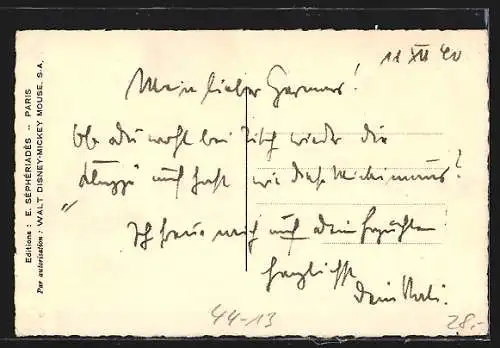 11 XII 40
Mein lieber
Ob du wohl bei Tisch wieder die
auf hast wie diese Mickimaus?
Ich freue mich auf dein
herzlichst
Dein
Editions : E. SÉPHÉRIADÈS - PARIS
Par autorisation : WALT DISNEY-MICKEY MOUSE, S.A.
44-13
28,-